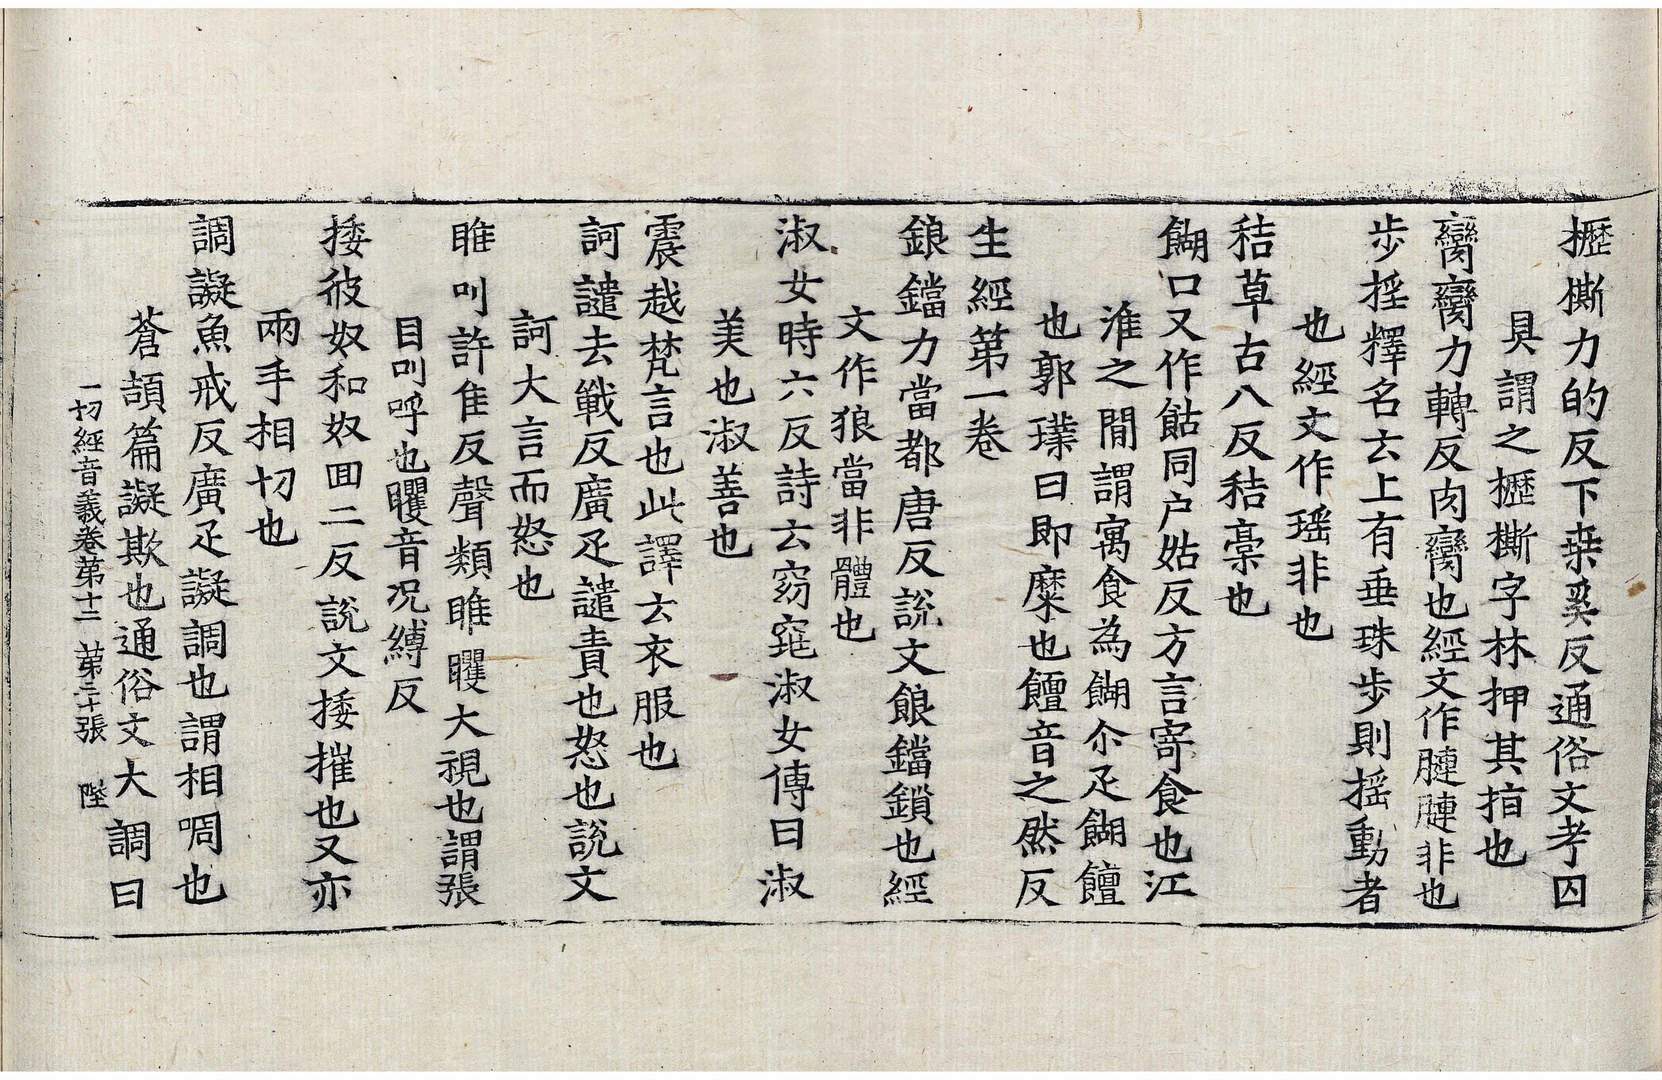 攊撕力的反下桒奚反通俗文考囚
具謂之攊撕字林押其指也
臠臠力轉反肉臠也經文作膧膧非也
步摇釋名云上有垂珠步則摇動者
也經文作瑶非也
秸草古八反秸稾也
餬口又作䬧同户姑反方言寄食也江
淮之閒謂寓食為餬尒疋餬饘
也郭璞曰即糜也饘音之然反
生經第一卷
鋃鐺力當都唐反說文鋃鐺鎖也經
文作狼當非體也
淑女時六反詩云窈窕淑女傳曰淑
美也淑善也
震越梵言也此譯云衣服也
訶譴去戰反廣疋譴責也怒也說文
訶大言而怒也
睢叫許隹反聲類睢矍大視也謂張
目叫呼也矍音况縛反
捼彼奴和奴回二反說文捼摧也又亦
兩手相切也
調譺魚戒反廣疋譺調也謂相啁也
蒼頡篇譺欺也通俗文大調曰
一切經音義卷第十二　第三十張　陛